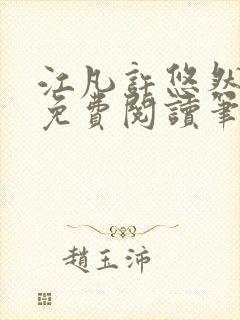 江凡許悠然
免費閱讀筆
趙玉沛